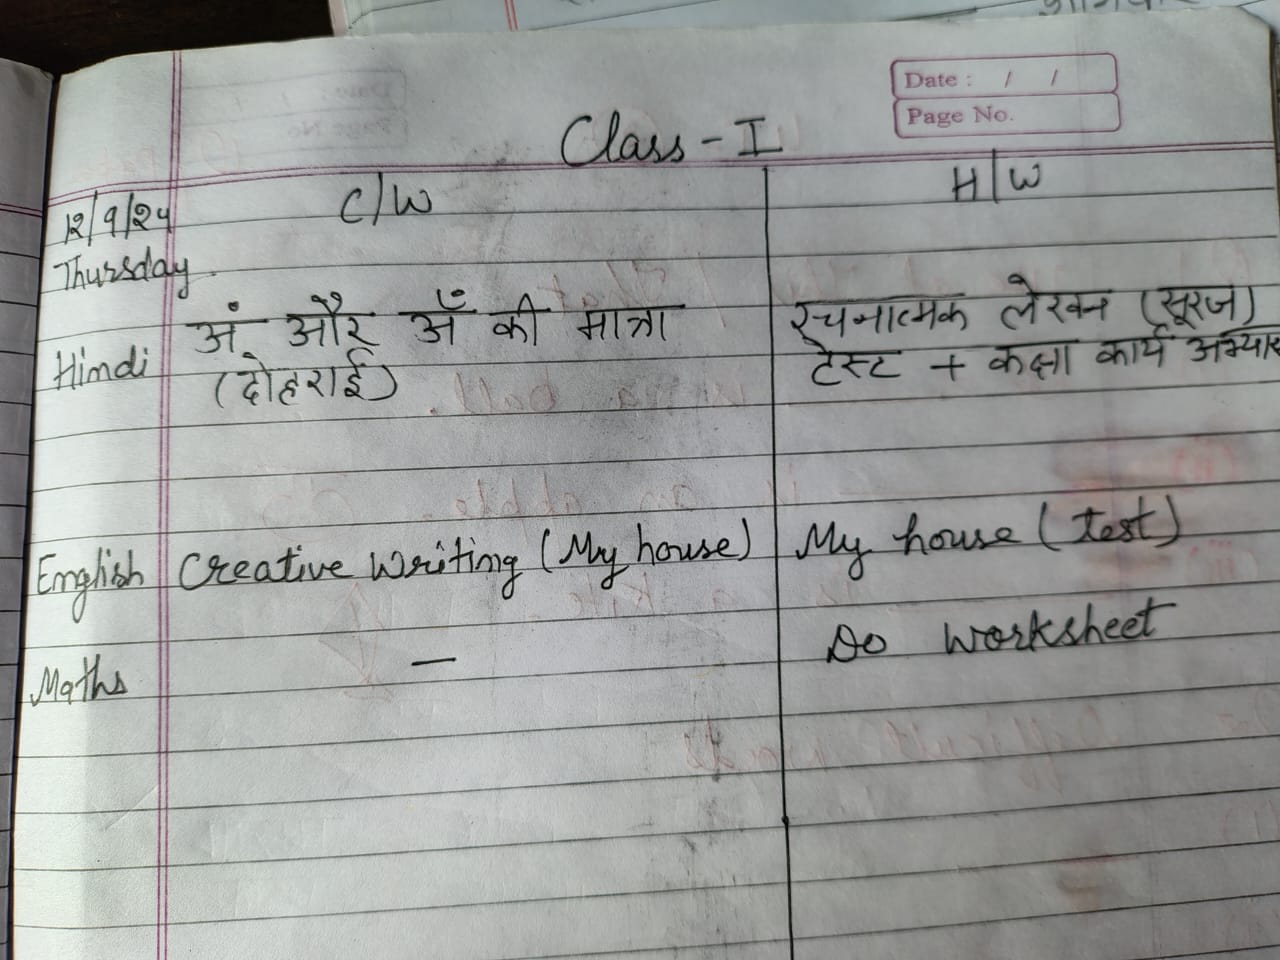 Date : / /
Page No.
Class - I
12/9/24 C/W H/W
Thursday
Hindi अं और अँ की मात्रा रचनात्मक लेखन (सूरज)
(दोहराई) टेस्ट + कक्षा कार्य
English Creative Writing (My house) My house (test)
Maths — Do Worksheet